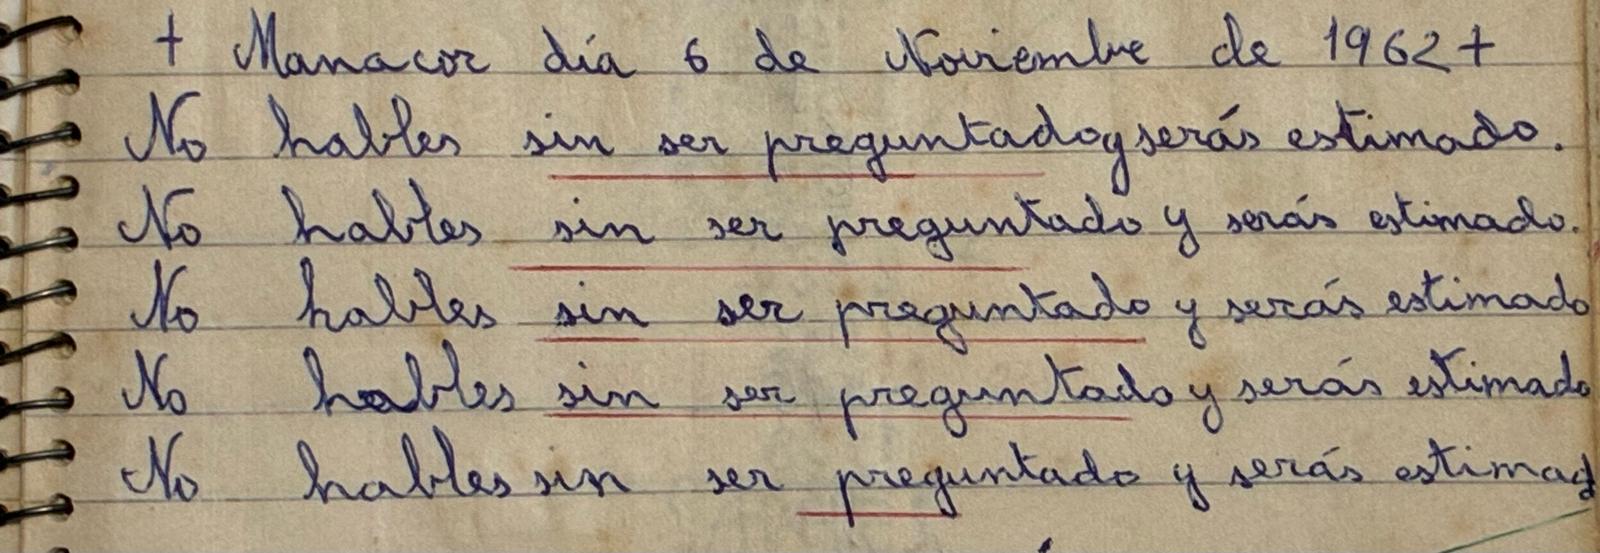 + Manacor día 6 de Noviembre de 1962 +
No hables sin ser preguntado y serás estimado.
No hables sin ser preguntado y serás estimado.
No hables sin ser preguntado y serás estimado
No hables sin ser preguntado y serás estimado
No hables sin ser preguntado y serás estimad